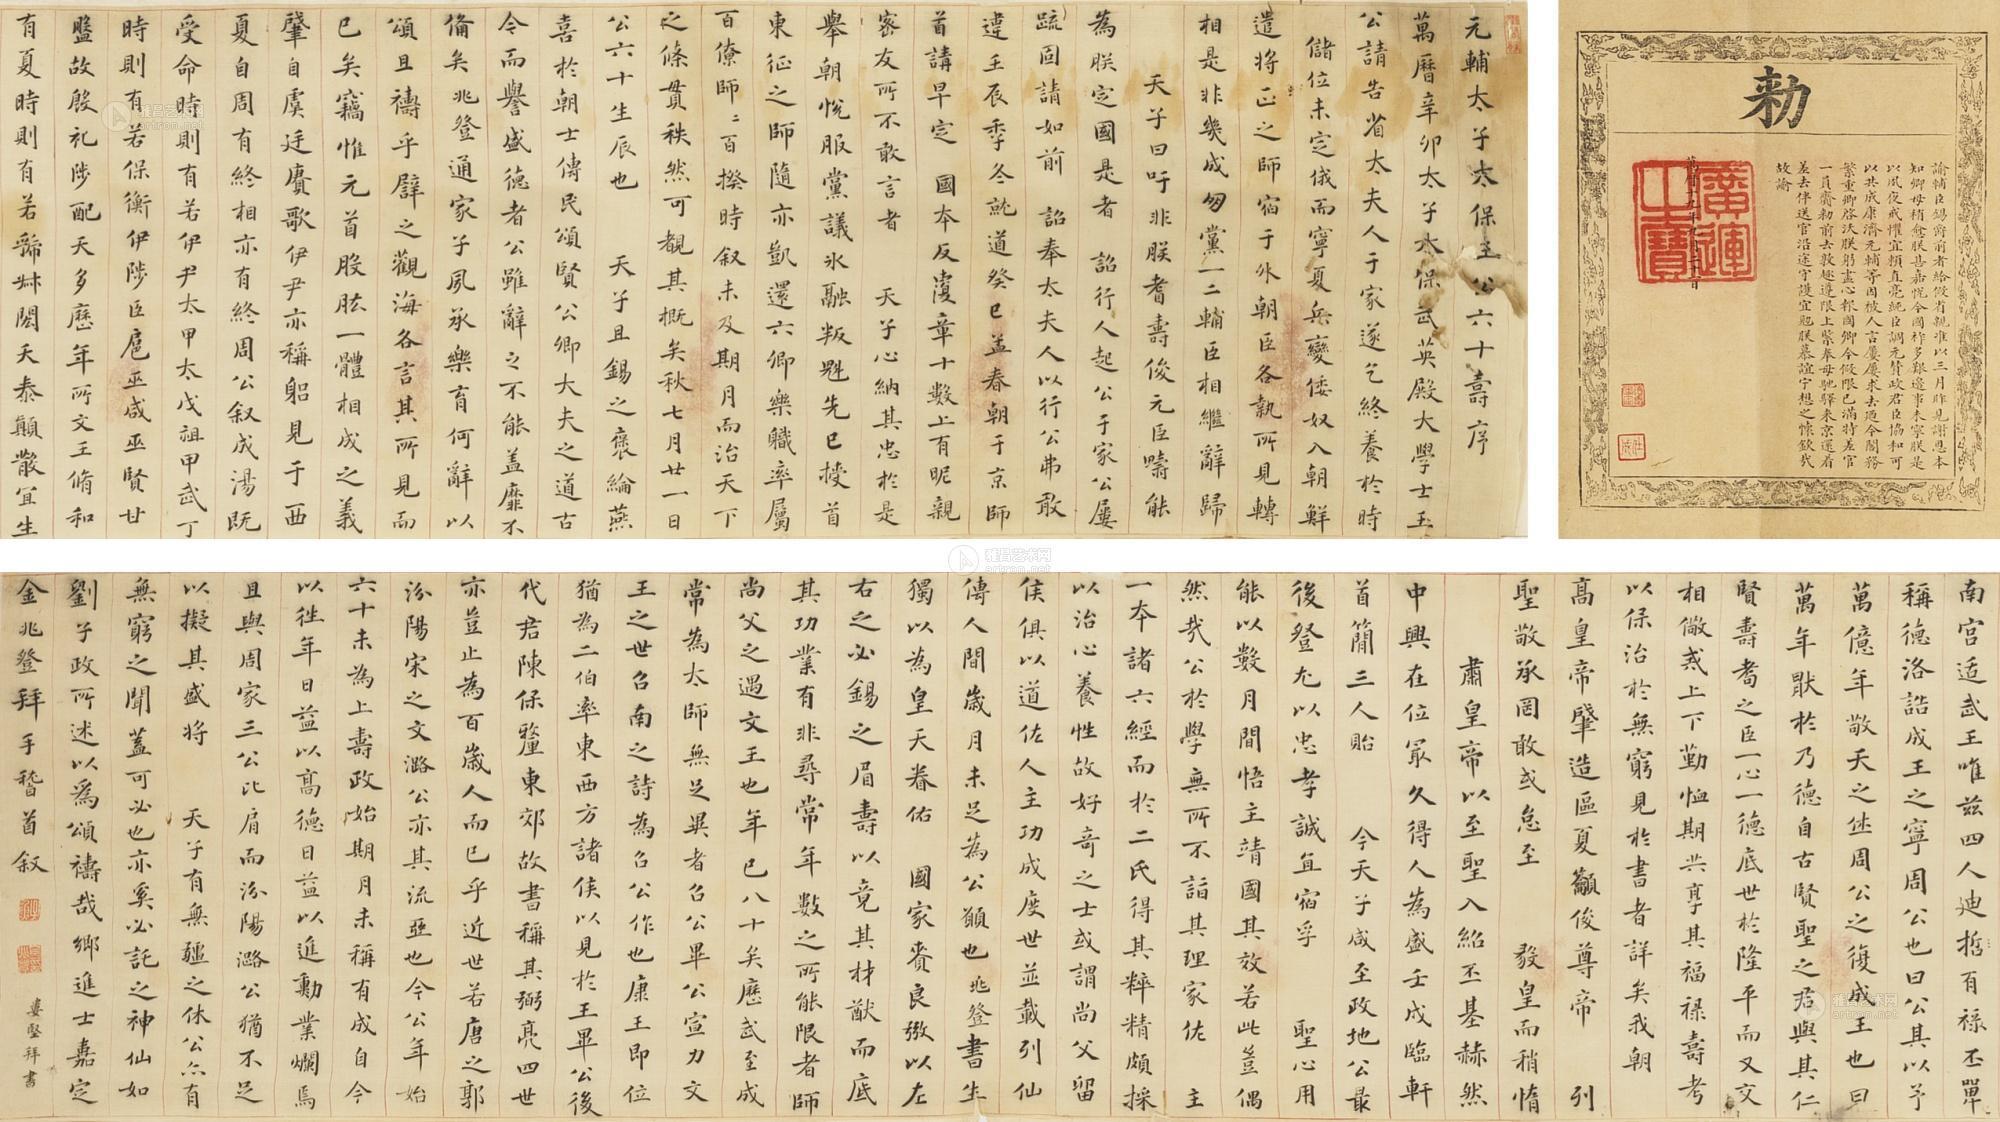 元輔太子太保王公六十壽序
萬曆辛卯太子太保武英殿大學士王
公請告省太夫人于家遂乞終養於時
儲位未定俄而寧夏兵變倭奴入朝鮮
遣將正之師宿于外朝臣各執所見轉
相是非幾成匆黨一二輔臣相繼辭歸
天子曰吁非朕耆壽俊元臣疇能
為朕定國是者 詔行人起公于家公屢
疏固請如前 詔奉太夫人以行公弗敢
違壬辰季冬就道癸巳孟春朝于京師
首講早定 國本反覆章十數上有昵親
密友所不敢言者 天子心納其忠於是
舉朝悅服黨議氷融叛魁先已授首
東征之師隨亦凱還六卿樂職率屬
百僚師〻百揆時叙未及期月而治天下
之條貫秩然可覩其概矣秋七月廿一日
公六十生辰也 天子且錫之褒綸燕
喜於朝士傳民頌賢公卿大夫之道古
今而譽盛德者公雖辭之不能盖靡不
備矣兆登通家子夙承樂育何辭以
頌且禱乎辟之觀海各言其所見而
已矣竊惟元首股肱一體相成之義
肈自虞廷賡歌伊尹亦稱躬見于西
夏自周有終相亦有終周公叙成湯既
受命時則有若伊尹太甲太戊祖甲武丁
時則有若保衡伊陟臣扈巫咸巫賢甘
盤故殷礼陟配天多歷年所文王脩和
有夏時則有若虢叔閎夭泰顛散宜生
勑
諭輔臣錫爵前者給假省親准以三月昨見謝恩本
知卿母稍愈朕甚嘉悅今國祚多艱邊事未寧朕是
以夙夜戒懼宜賴直亮純臣調元賛政君臣協和可
以共成康濟元輔等因被人言屢屢求去迺今閣務
繁重卿啓沃朕躬盡心報國卿今假限已滿特差官
一員齎勑前去敦趣遵限上緊奉母馳驛来京還着
差去伴送官沿途守護宜慰朕慕誼宁想之懷欽哉
故諭
萬曆十九年九月二十日
廣運之寶
南宮适武王唯茲四人迪哲有祿丕單
稱德洛誥成王之寧周公也曰公其以予
萬億年敬天之休周公之復成王也曰
萬年猒於乃德自古賢聖之君與其仁
賢壽耇之臣一心一德底世於隆平而又交
相儆戒上下勤恤期共享其福祿壽考
以保治於無窮見於書者詳矣我朝
高皇帝肈造區夏籲俊尊帝 列
聖敬承罔敢或怠至 毅皇而稍惰
肅皇帝以至聖入紹丕基赫然
中興在位㝡久得人為盛壬戌臨軒
首簡三人貽 今天子咸至政地公最
後登尤以忠孝誠亙宿孚 聖心用
能以數月間悟主靖國其效若此豈偶
然哉公於學無所不詣其理家佐 主
一本諸六經而於二氏得其粹精頗採
以治心養性故好奇之士或謂尚父留
侯俱以道佐人主功成度世並載列仙
傳人間歲月未足為公願也兆登書生
獨以為皇天眷佑 國家賚良弼以左
右之必錫之眉壽以竟其材猷而底
其功業有非尋常年數之所能限者師
尚父之遇文王也年已八十矣歷武至成
常為太師無足異者召公畢公宣力文
王之世召南之詩為召公作也康王即位
猶為二伯率東西方諸侯以見於王畢公後
代君陳保釐東郊故書稱其弼亮四世
亦豈止為百歲人而已乎近世若唐之郭
汾陽宋之文潞公亦其流亞也今公年始
六十未為上壽政始期月未稱有成自今
以徃年日益以高德日益以進勳業爛焉
且與周家三公比肩而汾陽潞公猶不足
以擬其盛將 天子有無疆之休公亦有
無窮之聞蓋可必也亦奚必託之神仙如
劉子政所述以為頌禱哉鄉進士嘉定
金兆登拜手稽首叙
婁堅拜書
雅昌艺术网
artron.net